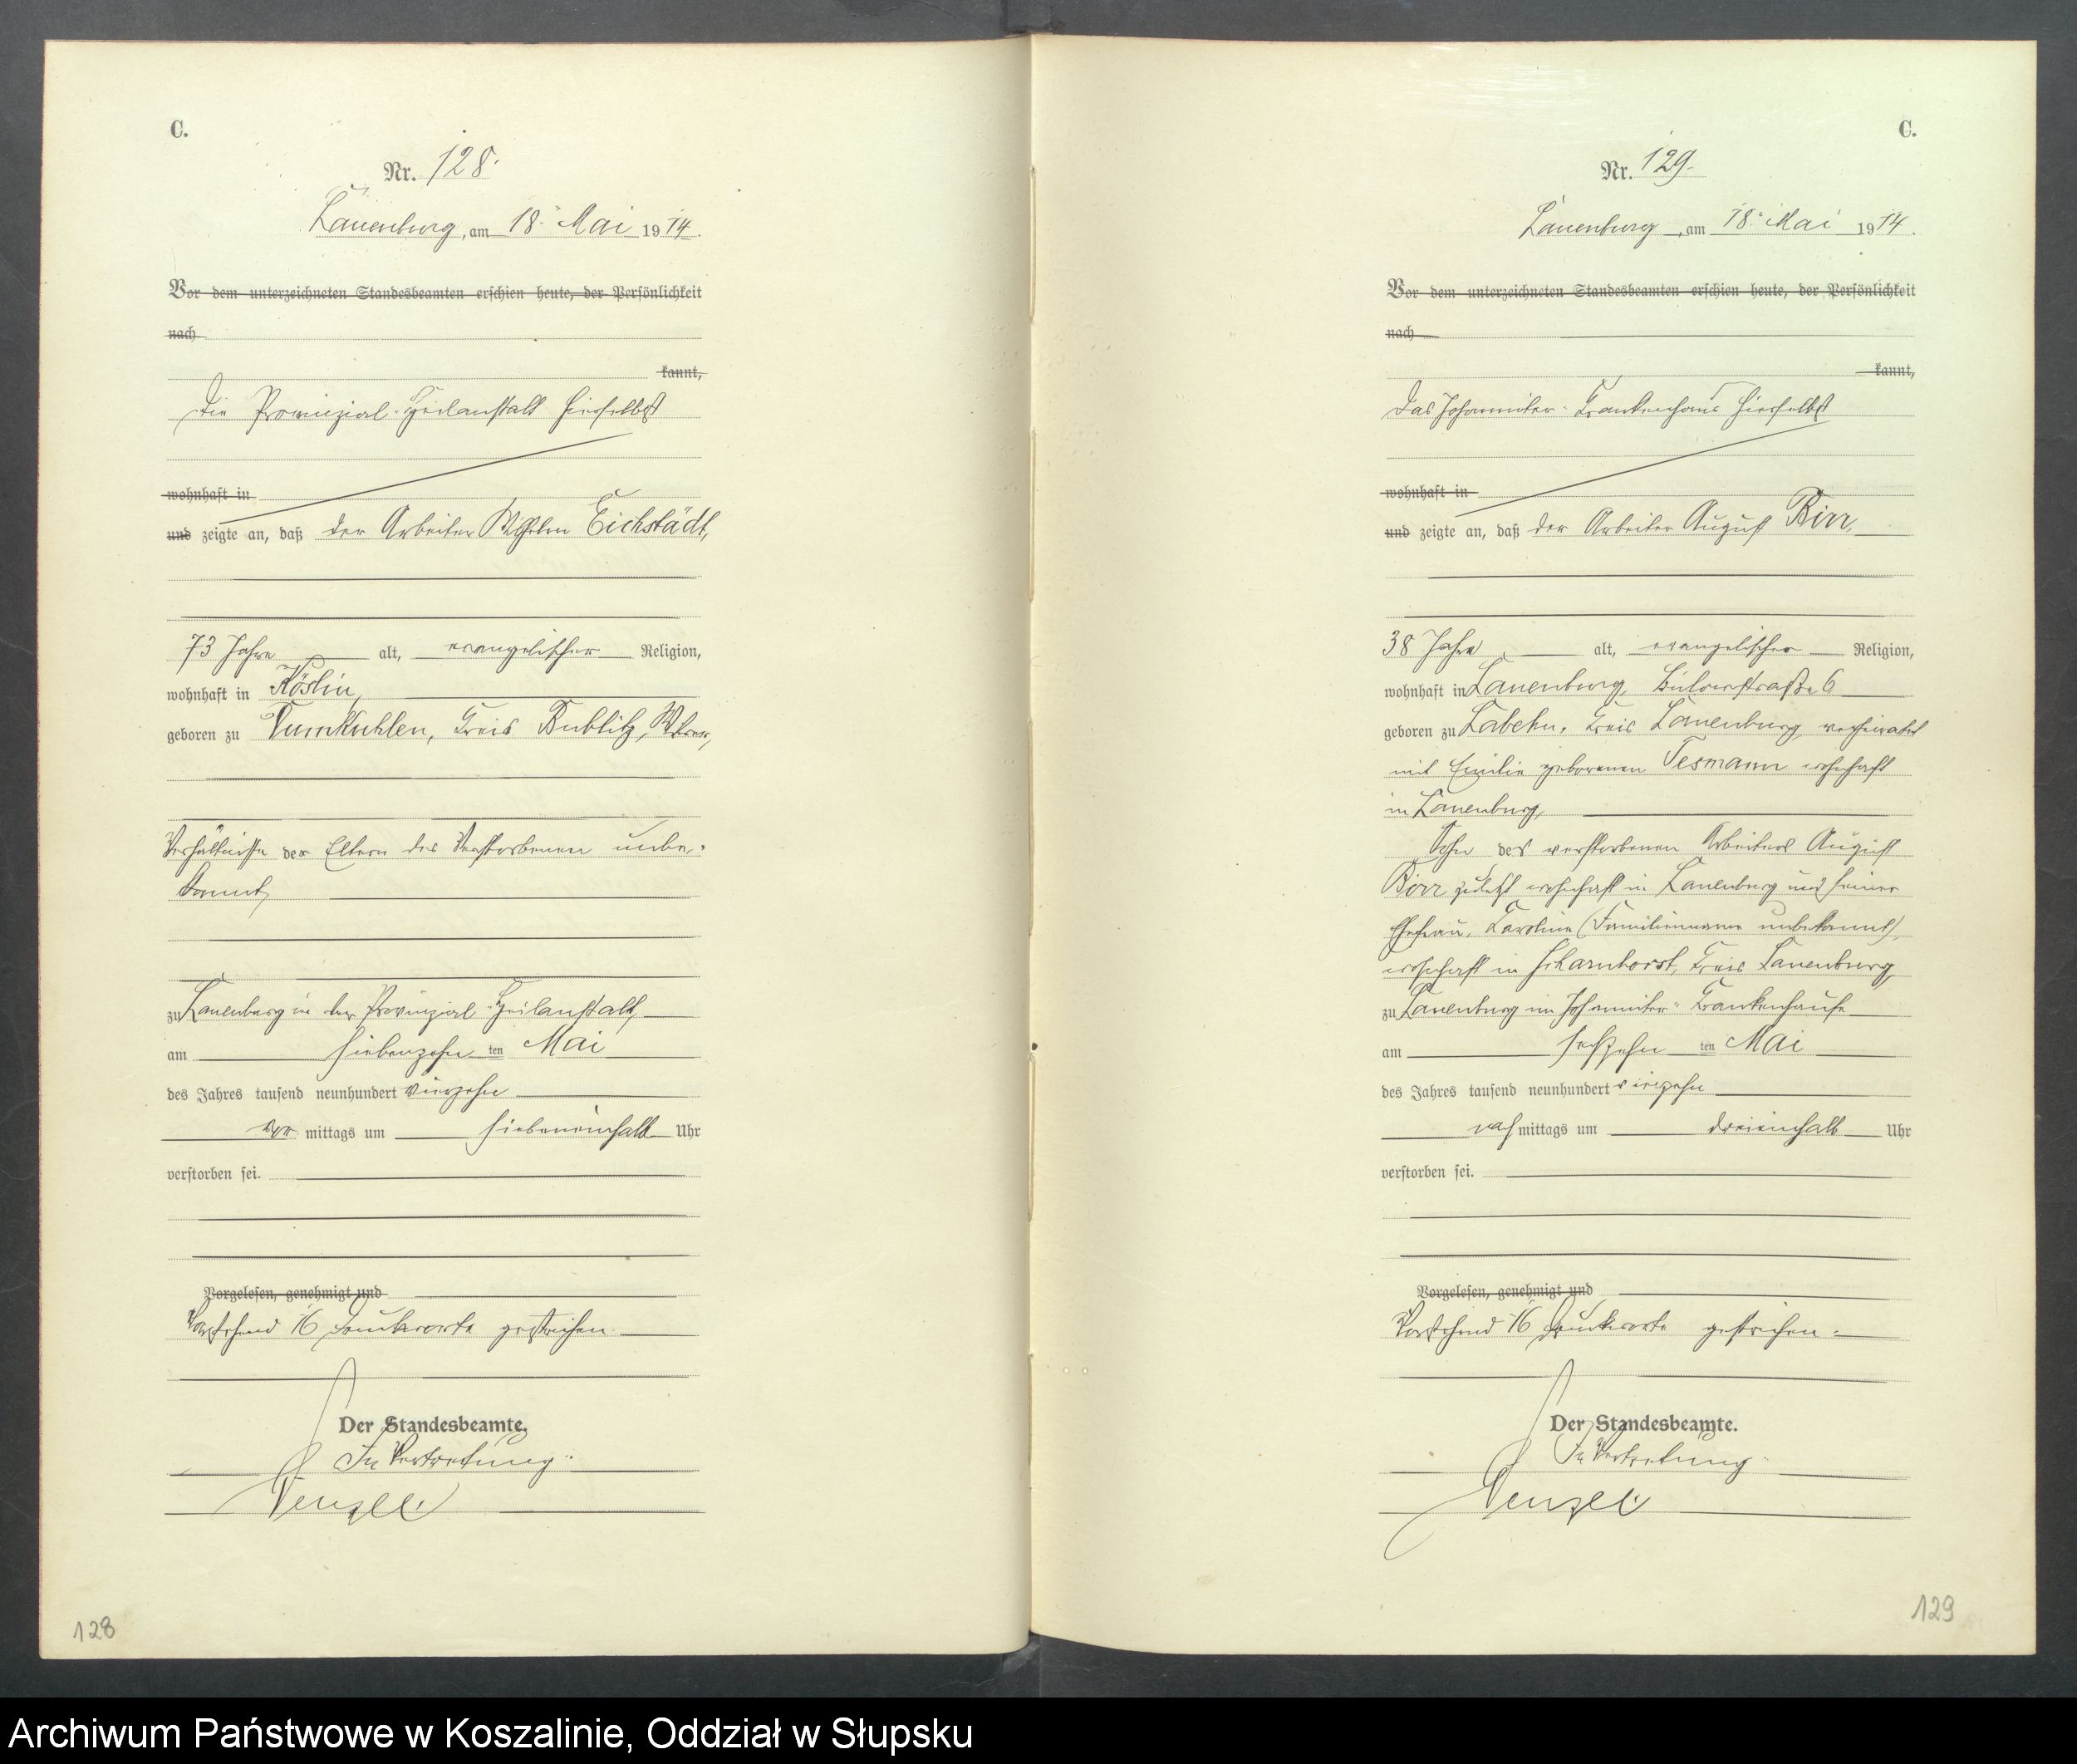 C.
Nr. 128.
Lauenburg, am 18. Mai 1914.
Vor dem unterzeichneten Standesbeamten erschien heute, der Persönlichkeit
nach
kannt,
Die Provinzial-Heilanstalt hierselbst
wohnhaft in
und zeigte an, daß der Arbeiter Wilhelm Eichstädt,
73 Jahre alt, evangelischer Religion,
wohnhaft in Köslin,
geboren zu Kuhlen, Kreis Bublitz,
Verhältnisse der Eltern des Verstorbenen unbe-
kannt,
zu Lauenburg in der Provinzial-Heilanstalt,
am siebenzehn ten Mai
des Jahres tausend neunhundert vierzehn
vor mittags um siebeneinhalb Uhr
verstorben sei.
Vorgelesen, genehmigt und
Vorstehend 16 Druckworte gestrichen.
Der Standesbeamte.
In Vertretung.
128
C.
Nr. 129.
Lauenburg, am 18. Mai 1914.
Vor dem unterzeichneten Standesbeamten erschien heute, der Persönlichkeit
nach
kannt,
Das Johanniter-Krankenhaus hierselbst
wohnhaft in
und zeigte an, daß der Arbeiter August Birr,
38 Jahre alt, evangelischer Religion,
wohnhaft in Lauenburg, Bülowstraße 6
geboren zu Labehn, Kreis Lauenburg, verheiratet
mit Emilie geborenen Tesmann wohnhaft
in Lauenburg,
Sohn des verstorbenen Arbeiters August
Birr zuletzt wohnhaft in Lauenburg und seiner
Ehefrau, Karoline (Familienname unbekannt),
wohnhaft in Scharnhorst, Kreis Lauenburg,
zu Lauenburg im Johanniter-Krankenhause
am sechzehn ten Mai
des Jahres tausend neunhundert vierzehn
nach mittags um dreieinhalb Uhr
verstorben sei.
Vorgelesen, genehmigt und
Vorstehend 16 Druckworte gestrichen.
Der Standesbeamte.
In Vertretung.
129
Archiwum Państwowe w Koszalinie, Oddział w Słupsku